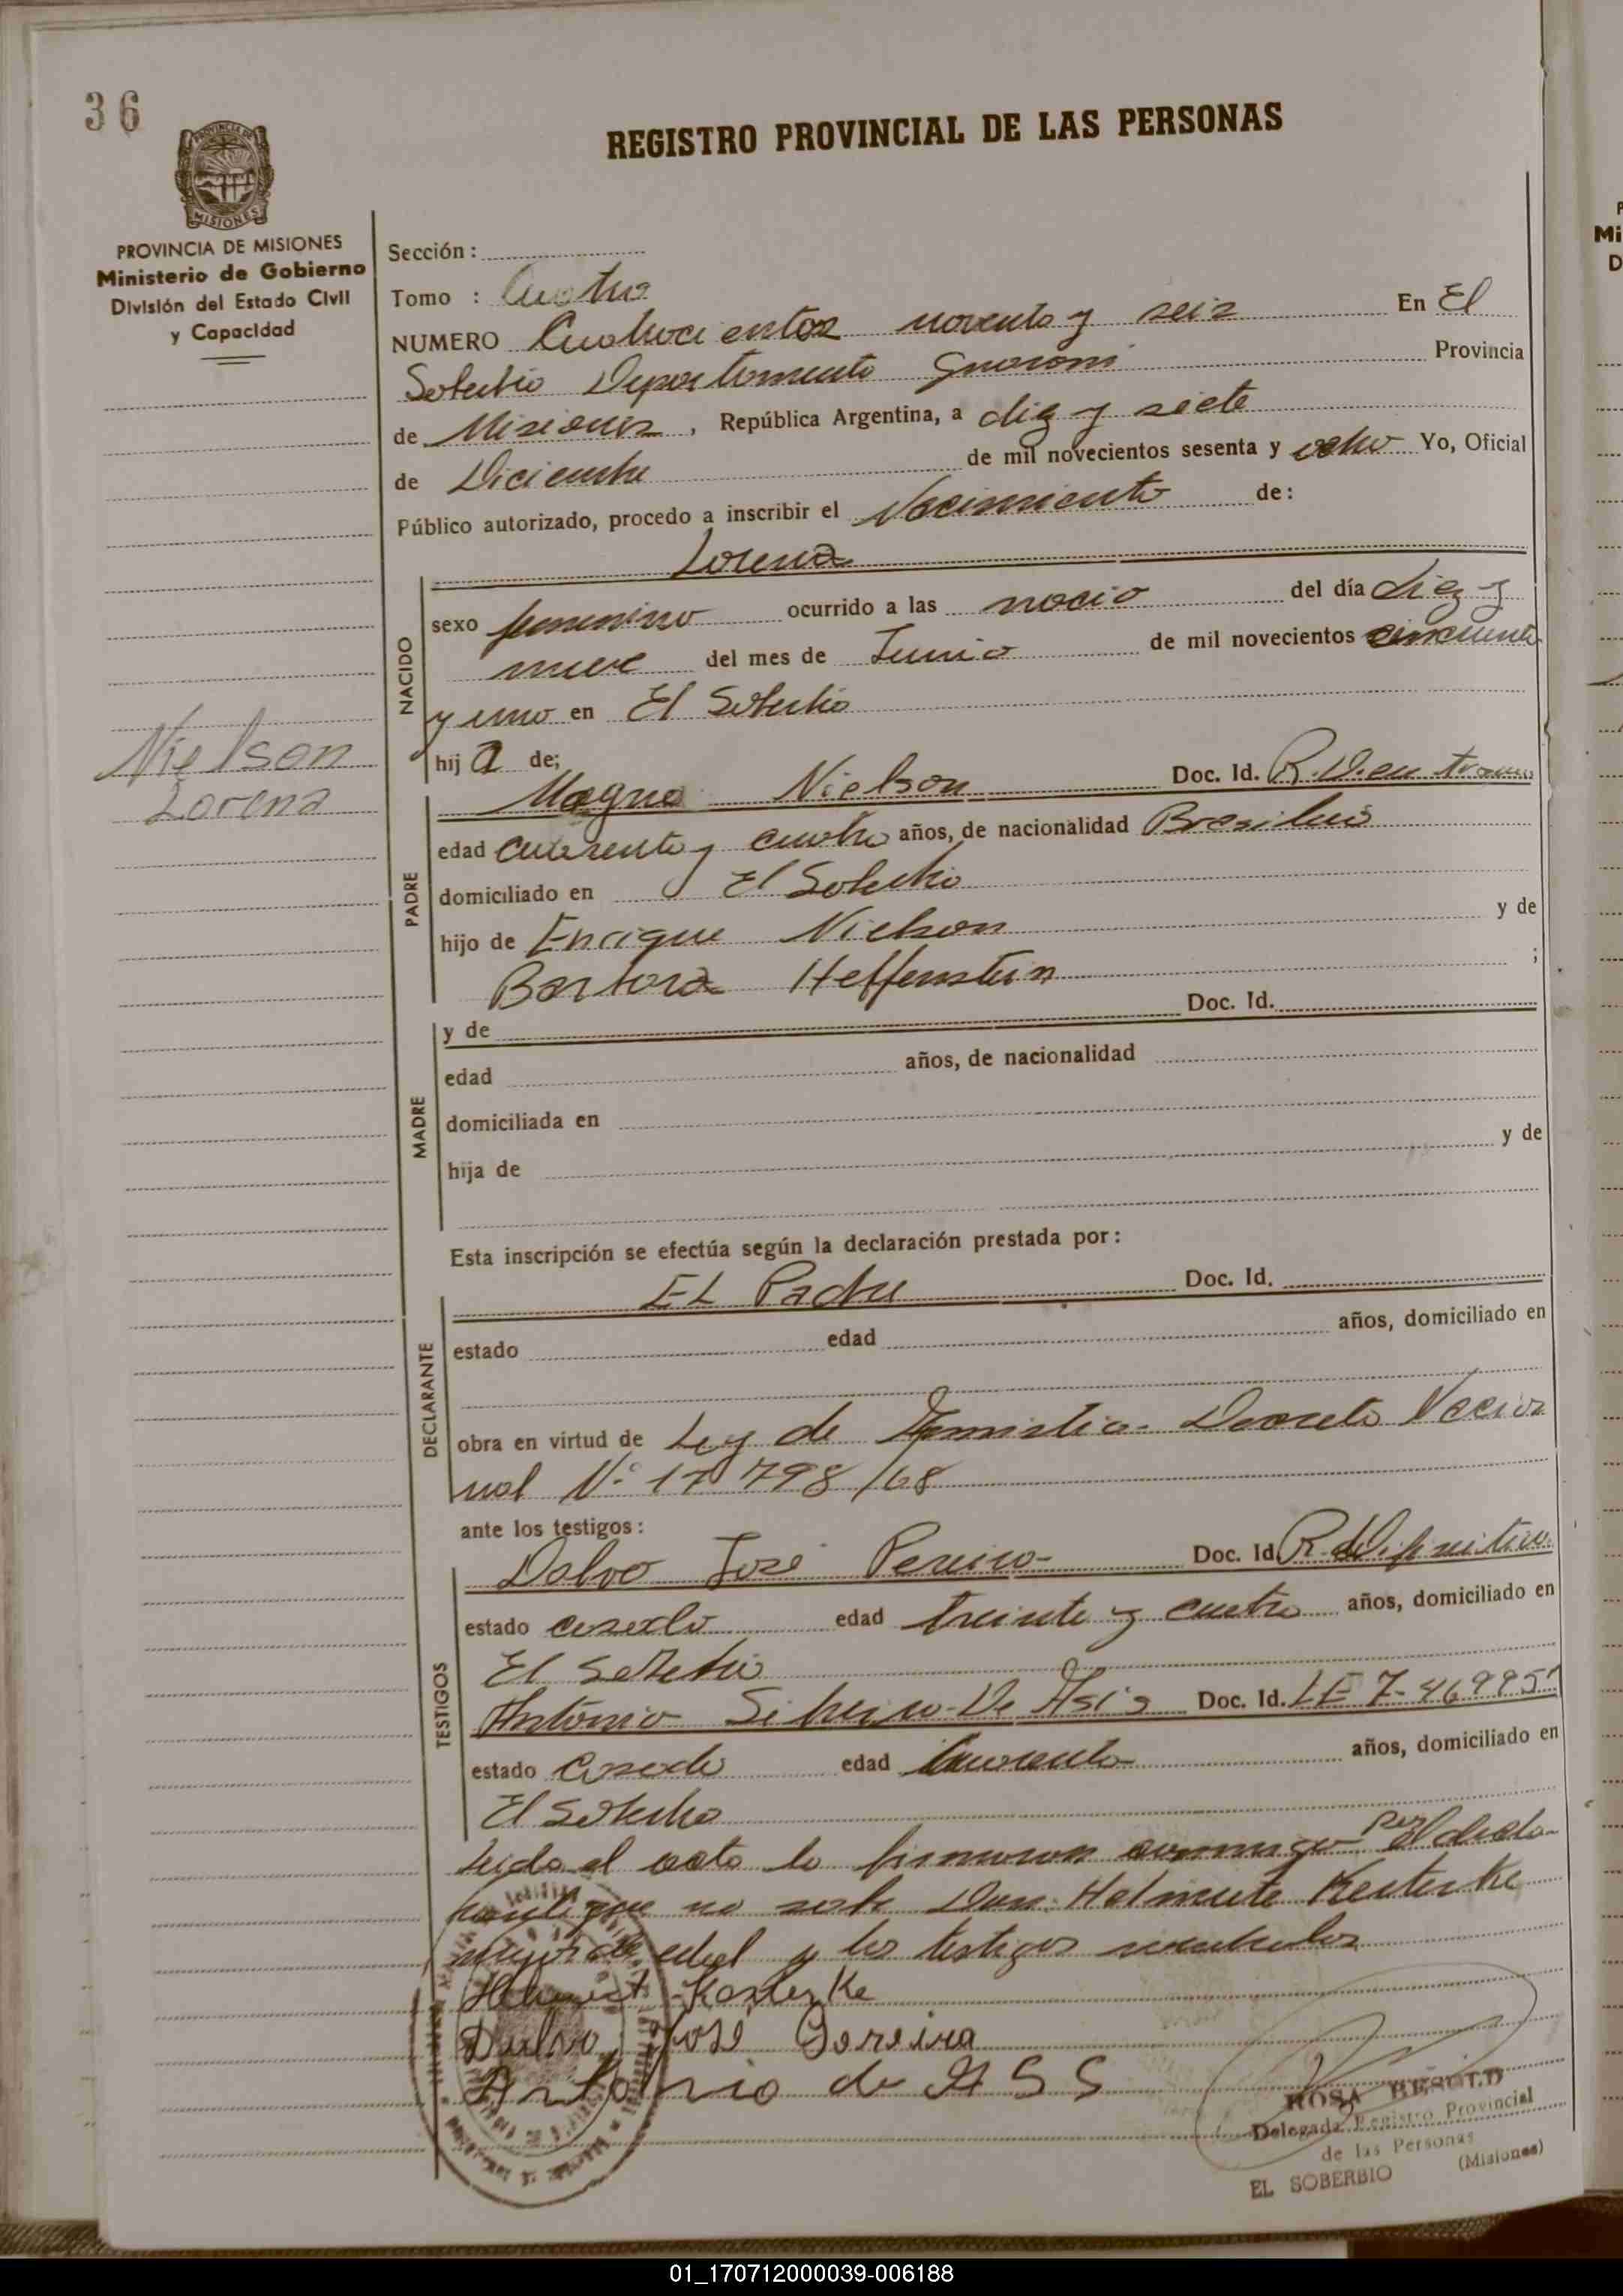 36
REGISTRO PROVINCIAL DE LAS PERSONAS
PROVINCIA DE
MISIONES
PROVINCIA DE MISIONES
Ministerio de Gobierno
División del Estado Civil
y Capacidad
Nielson
Lorena
Sección:
Tomo : Cuatro
NUMERO Cuatrocientos noventa y seis En El
Soberbio Departamento Guarani Provincia
de Misiones, República Argentina, a diez y siete
de Diciembre de mil novecientos sesenta y ocho Yo, Oficial
Público autorizado, procedo a inscribir el Nacimiento de:
Lorena
NACIDO
sexo femenino ocurrido a las nació del día diez y
nueve del mes de Junio de mil novecientos cincuenta
y uno en El Soberbio
hij a de;
PADRE
Magno Nielson Doc. Id. R.D. en tramite
edad cuarenta y cuatro años, de nacionalidad Brasilero
domiciliado en El Soberbio
hijo de Enrique Nielson y de
Barbara Heffenstein ;
MADRE
y de Doc. Id.
edad años, de nacionalidad
domiciliada en
hija de y de
Esta inscripción se efectúa según la declaración prestada por:
DECLARANTE
EL Padre Doc. Id.
estado edad años, domiciliado en
obra en virtud de Ley de Amnistia Decreto Nacio
nal N° 17798/68
ante los testigos:
TESTIGOS
Dalvo José Pereira Doc. Id. R. definitivo
estado casado edad treinta y cuatro años, domiciliado en
El Soberbio
Antonio De Asis Doc. Id. LE 7-469951
estado Casado edad Cuarenta años, domiciliado en
El Soberbio
Leida el acta la firmaron conmigo por el decla
rante que no sabe Don Helmute Kesterke
mayor de edad y los testigos nombrados
Helmut Kesterke
Dalvo José Pereira
Antonio de ASS
ROSA BESOLD
Delegada Registro Provincial
de las Personas
EL SOBERBIO (Misiones)
01_170712000039-006188